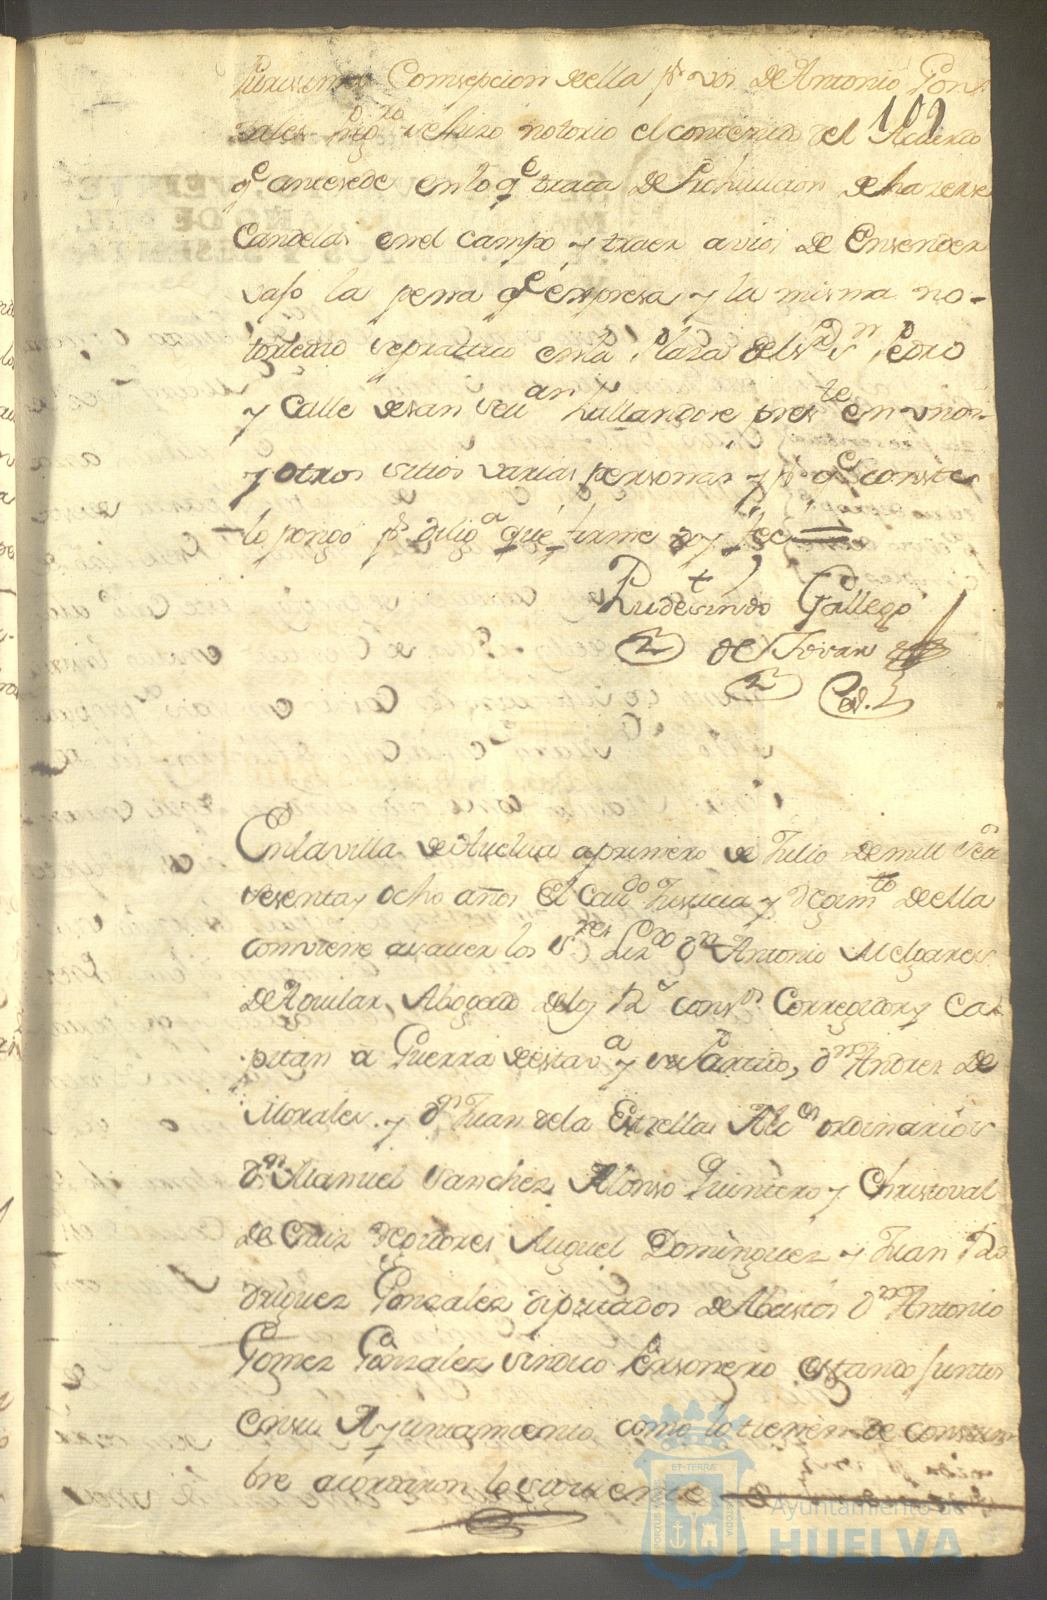 Purissima Comsepcion deella pr vos de Antonio Gon
zales prego se hizo notorio el contenido del Acuerdo
qe antesede en lo qe trata de Prohivicion de hazerse
Candelas en el campo y traer avios de Ensender
vajo la pena qe expresa, y la misma no-
toriedad se practico en la Plaza del Sr Sn Pedro
y Calle de san Sevan hallandose preste en unos
y otros sitios varias personas y pa qe conste
lo pongo pr diliga que firme doy fee
Rudesindo Gallego
de Tovar
Es.
109
En la villa de Huelva a primero de Julio de mill
sesenta y ocho años El Cavdo Justicia y Regimto de ella
combiene a saver los Sres Lizdo Dn Antonio Melgarejo
de Aguilar Abogado de los Rs consos Corregidor y Ca-
pitan a Guerra de esta va y su Partido, Dn Andres de
Morales y Dn Juan de la Estrella Alces ordinarios
Dn Manuel Sanchez Alonso Quintero y Christoval
de Cruz Regidores Miguel Dominguez y Juan Ro
driguez Gonzalez diputados de Abastos Dn Antonio
Gomez Gonzalez sindico Personero estando juntos
en su Ayuntamiento como lo tienen de constum
bre acordaron lo siguiente
Ayuntamiento de
HUELVA